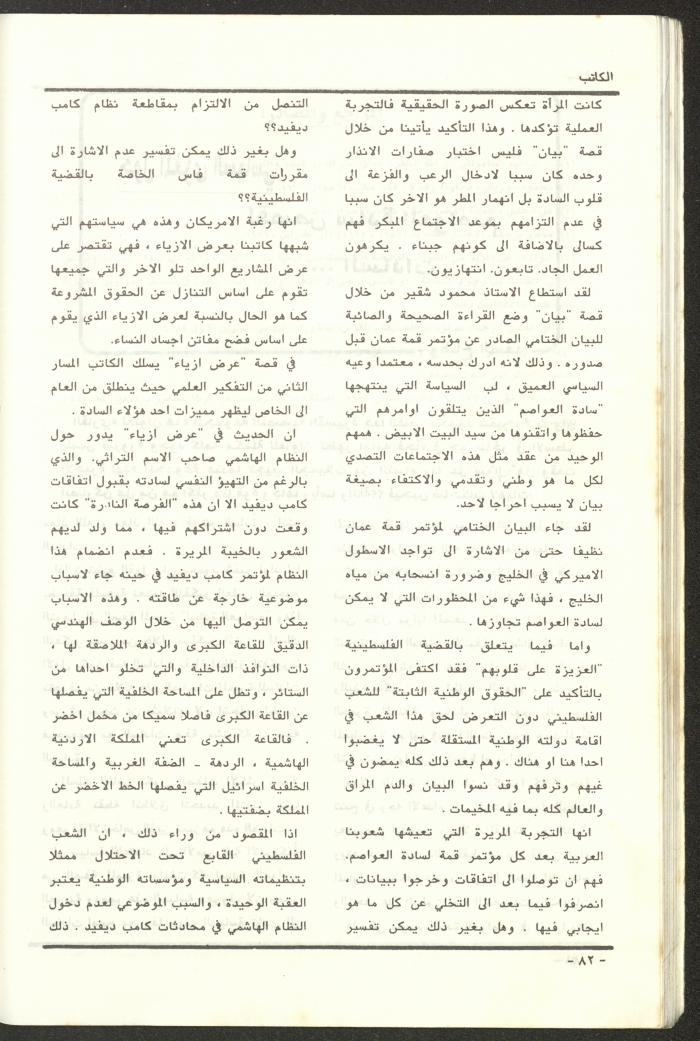 الكاتب
كانت المرآة تعكس الصورة الحقيقية فالتجربة
العملية تؤكدها . وهذا التأكيد يأتينا من خلال
قصة "بيان" فليس اختبار صفارات الانذار
وحده كان سببا لادخال الرعب والفزعة الى
قلوب السادة بل انهمار المطر هو الاخر كان سببا
في عدم التزامهم بموعد الاجتماع المبكر فهم
كسالى بالاضافة الى كونهم جبناء . يكرهون
العمل الجاد. تابعون. انتهازيون.
لقد استطاع الاستاذ محمود شقير من خلال
قصة "بيان" وضع القراءة الصحيحة والصائبة
للبيان الختامي الصادر عن مؤتمر قمة عمان قبل
صدوره . وذلك لانه ادرك بحدسه ، معتمدا وعيه
السياسي العميق ، لب السياسة التي ينتهجها
"سادة العواصم" الذين يتلقون اوامرهم التي
حفظوها واتقنوها من سيد البيت الابيض . همهم
الوحيد من عقد مثل هذه الاجتماعات التصدي
لكل ما هو وطني وتقدمي والاكتفاء بصيغة
بيان لا يسبب احراجا لاحد.
لقد جاء البيان الختامي لمؤتمر قمة عمان
نظيفا حتى من الاشارة الى تواجد الاسطول
الاميركي في الخليج وضرورة انسحابه من مياه
الخليج ، فهذا شيء من المحظورات التي لا يمكن
لسادة العواصم تجاوزها .
واما فيما يتعلق بالقضية الفلسطينية
"العزيزة على قلوبهم" فقد اكتفى المؤتمرون
بالتأكيد على "الحقوق الوطنية الثابتة" للشعب
الفلسطيني دون التعرض لحق هذا الشعب في
اقامة دولته الوطنية المستقلة حتى لا يغضبوا
احدا هنا او هناك . وهم بعد ذلك كله يمضون في
غيهم وترفهم وقد نسوا البيان والدم المراق
والعالم كله بما فيه المخيمات .
انها التجربة المريرة التي تعيشها شعوبنا
العربية بعد كل مؤتمر قمة لسادة العواصم.
فهم ان توصلوا الى اتفاقات وخرجوا ببيانات ،
انصرفوا فيما بعد الى التخلي عن كل ما هو
ايجابي فيها . وهل بغير ذلك يمكن تفسير
التنصل من الالتزام بمقاطعة نظام كامب
ديفيد؟؟
وهل بغير ذلك يمكن تفسير عدم الاشارة الى
مقررات قمة فاس الخاصة بالقضية
الفلسطينية؟؟
انها رغبة الامريكان وهذه هي سياستهم التي
شبهها كاتبنا بعرض الازياء ، فهي تقتصر على
عرض المشاريع الواحد تلو الاخر والتي جميعها
تقوم على اساس التنازل عن الحقوق المشروعة
كما هو الحال بالنسبة لعرض الازياء الذي يقوم
على اساس فضح مفاتن اجساد النساء.
في قصة "عرض ازياء" يسلك الكاتب المسار
الثاني من التفكير العلمي حيث ينطلق من العام
الى الخاص ليظهر مميزات احد هؤلاء السادة .
ان الحديث في "عرض ازياء" يدور حول
النظام الهاشمي صاحب الاسم التراثي. والذي
بالرغم من التهيؤ النفسي لسادته بقبول اتفاقات
كامب ديفيد الا ان هذه "الفرصة النادرة" كانت
وقعت دون اشتراكهم فيها ، مما ولد لديهم
الشعور بالخيبة المريرة . فعدم انضمام هذا
النظام لمؤتمر كامب ديفيد في حينه جاء لاسباب
موضوعية خارجة عن طاقته . وهذه الاسباب
يمكن التوصل اليها من خلال الوصف الهندسي
الدقيق للقاعة الكبرى والردهة الملاصقة لها ،
ذات النوافذ الداخلية والتي تخلو احداها من
الستائر ، وتطل على المساحة الخلفية التي يفصلها
عن القاعة الكبرى فاصلا سميكا من مخمل اخضر
. فالقاعة الكبرى تعني المملكة الاردنية
الهاشمية ، الردهة ــ الضفة الغربية والمساحة
الخلفية اسرائيل التي يفصلها الخط الاخضر عن
المملكة بضفتيها .
اذا المقصود من وراء ذلك ، ان الشعب
الفلسطيني القابع تحت الاحتلال ممثلا
بتنظيماته السياسية ومؤسساته الوطنية يعتبر
العقبة الوحيدة ، والسبب الموضوعي لعدم دخول
النظام الهاشمي في محادثات كامب ديفيد . ذلك
- ٨٢ -